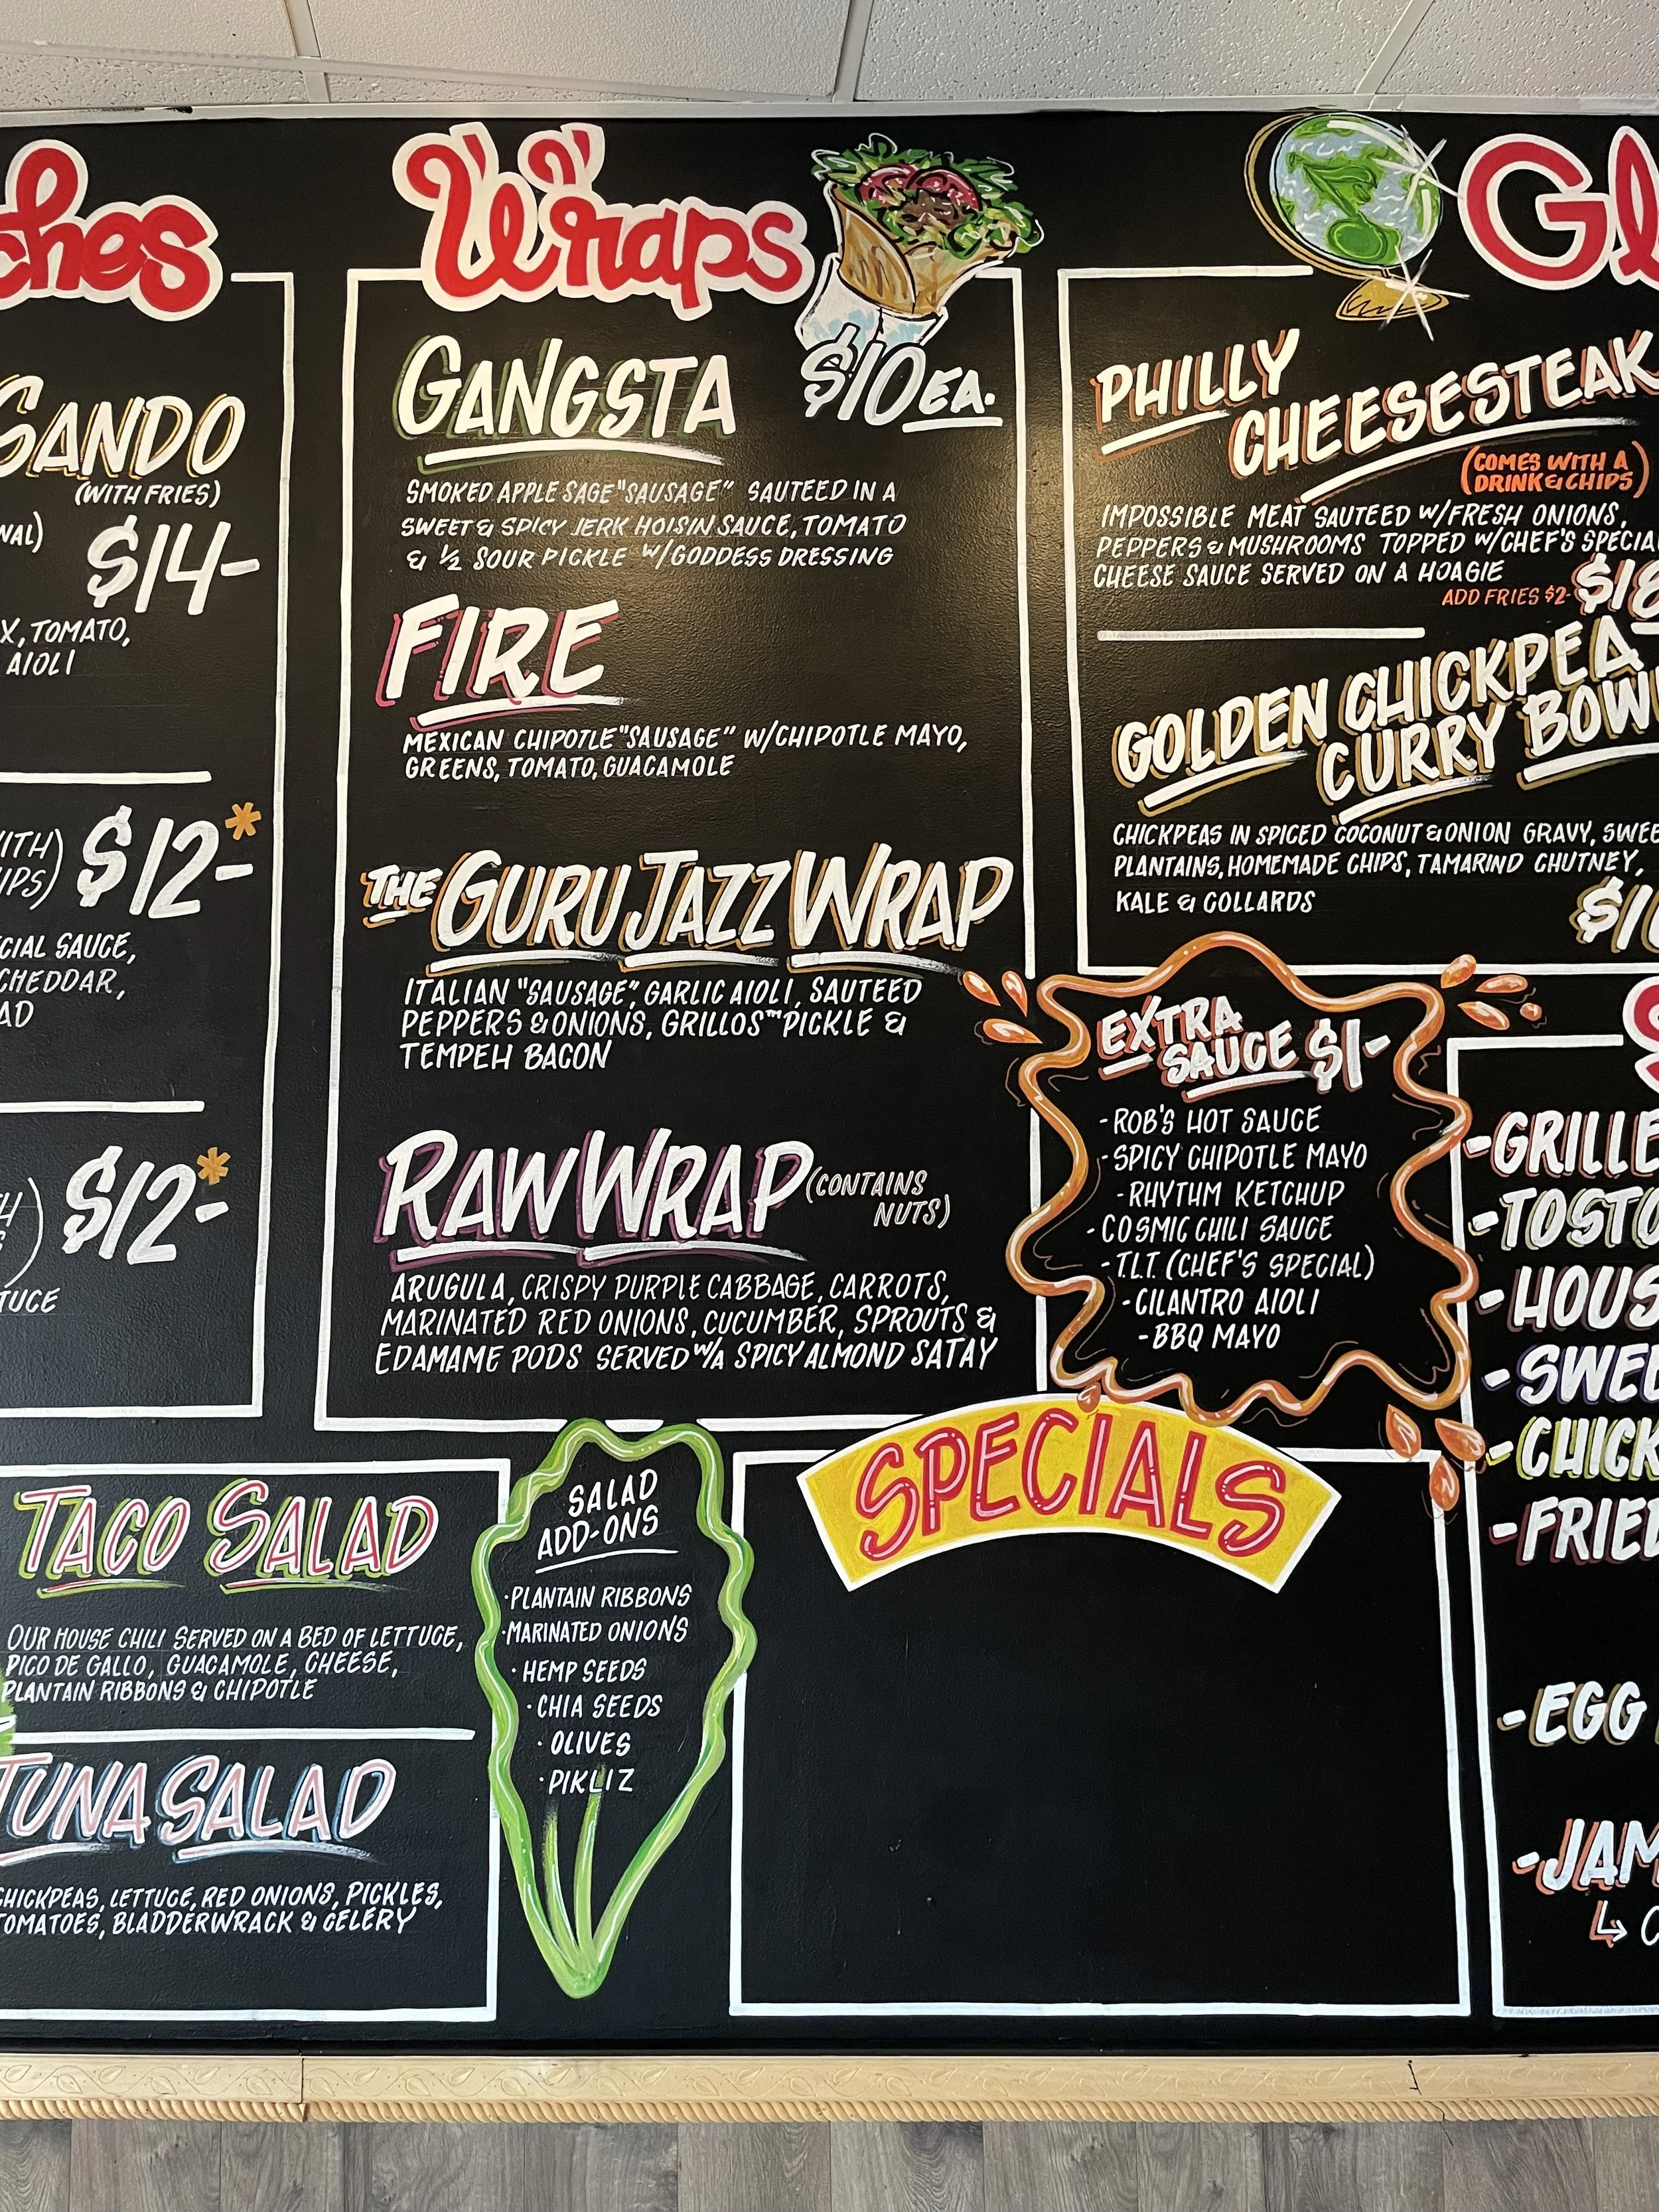 ches
SANDO
(WITH FRIES)
$14-
X, TOMATO,
AIOLI
$12-*
CIAL SAUCE,
CHEDDAR,
AD
$12-*
TUCE
Wraps
$10 EA.
GANGSTA
SMOKED APPLE SAGE "SAUSAGE" SAUTEED IN A
SWEET & SPICY JERK HOISIN SAUCE, TOMATO
& ½ SOUR PICKLE W/GODDESS DRESSING
FIRE
MEXICAN CHIPOTLE "SAUSAGE" W/CHIPOTLE MAYO,
GREENS, TOMATO, GUACAMOLE
THE GURU JAZZ WRAP
ITALIAN "SAUSAGE", GARLIC AIOLI, SAUTEED
PEPPERS & ONIONS, GRILLOS™ PICKLE &
TEMPEH BACON
RAW WRAP (CONTAINS
NUTS)
ARUGULA, CRISPY PURPLE CABBAGE, CARROTS,
MARINATED RED ONIONS, CUCUMBER, SPROUTS &
EDAMAME PODS SERVED W/A SPICY ALMOND SATAY
Gl
PHILLY
CHEESESTEAK
(COMES WITH A
DRINK & CHIPS)
IMPOSSIBLE MEAT SAUTEED W/FRESH ONIONS,
PEPPERS & MUSHROOMS TOPPED W/CHEF'S SPECIA
CHEESE SAUCE SERVED ON A HOAGIE
ADD FRIES $2- $18
GOLDEN CHICKPEA
CURRY BOW
CHICKPEAS IN SPICED COCONUT & ONION GRAVY, SWEE
PLANTAINS, HOMEMADE CHIPS, TAMARIND CHUTNEY,
KALE & COLLARDS
EXTRA
SAUCE $1-
-ROB'S HOT SAUCE
-SPICY CHIPOTLE MAYO
-RHYTHM KETCHUP
-COSMIC CHILI SAUCE
-T.L.T. (CHEF'S SPECIAL)
-CILANTRO AIOLI
-BBQ MAYO
-GRILLE
-TOSTO
-HOUS
-SWEE
-CHICK
-FRIED
-EGG
-JAM
TACO SALAD
OUR HOUSE CHILI SERVED ON A BED OF LETTUCE,
PICO DE GALLO, GUACAMOLE, CHEESE,
PLANTAIN RIBBONS & CHIPOTLE
TUNA SALAD
CHICKPEAS, LETTUCE, RED ONIONS, PICKLES,
TOMATOES, BLADDERWRACK & CELERY
SALAD
ADD-ONS
·PLANTAIN RIBBONS
·MARINATED ONIONS
·HEMP SEEDS
·CHIA SEEDS
·OLIVES
·PIKLIZ
SPECIALS